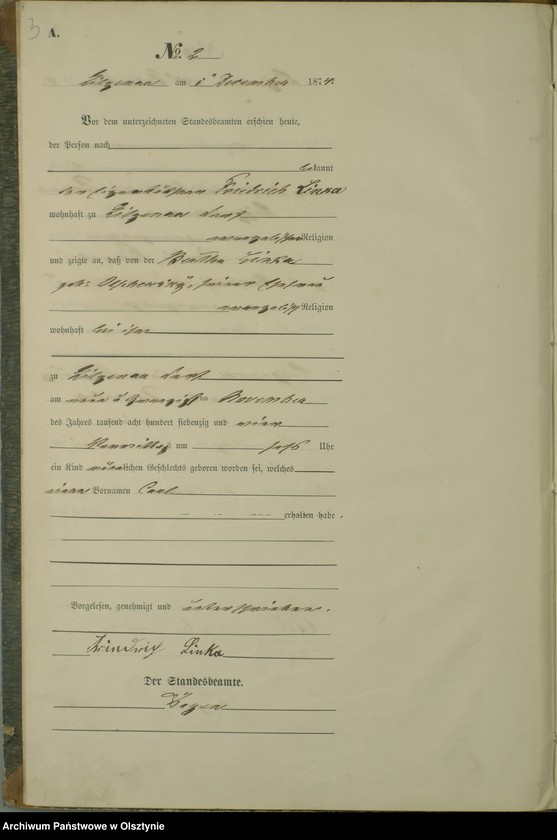 3
A.
No. 2
am 1ten December 1874.
Vor dem unterzeichneten Standesbeamten erschien heute,
der Person nach
bekannt
Friedrich Linka
wohnhaft zu
evangelischer Religion
und zeigte an, daß von der Bertha Linka
geb: seiner Ehefrau
evangelisch Religion
wohnhaft bei ihm
zu
am neun u zwanzigsten November
des Jahres tausend acht hundert siebenzig und vier
Vormittag um sechs Uhr
ein Kind männlichen Geschlechts geboren worden sei, welches
einen Vornamen Carl
erhalten habe.
Vorgelesen, genehmigt und unterschrieben.
Friedrich Linka
Der Standesbeamte.
Archiwum Państwowe w Olsztynie